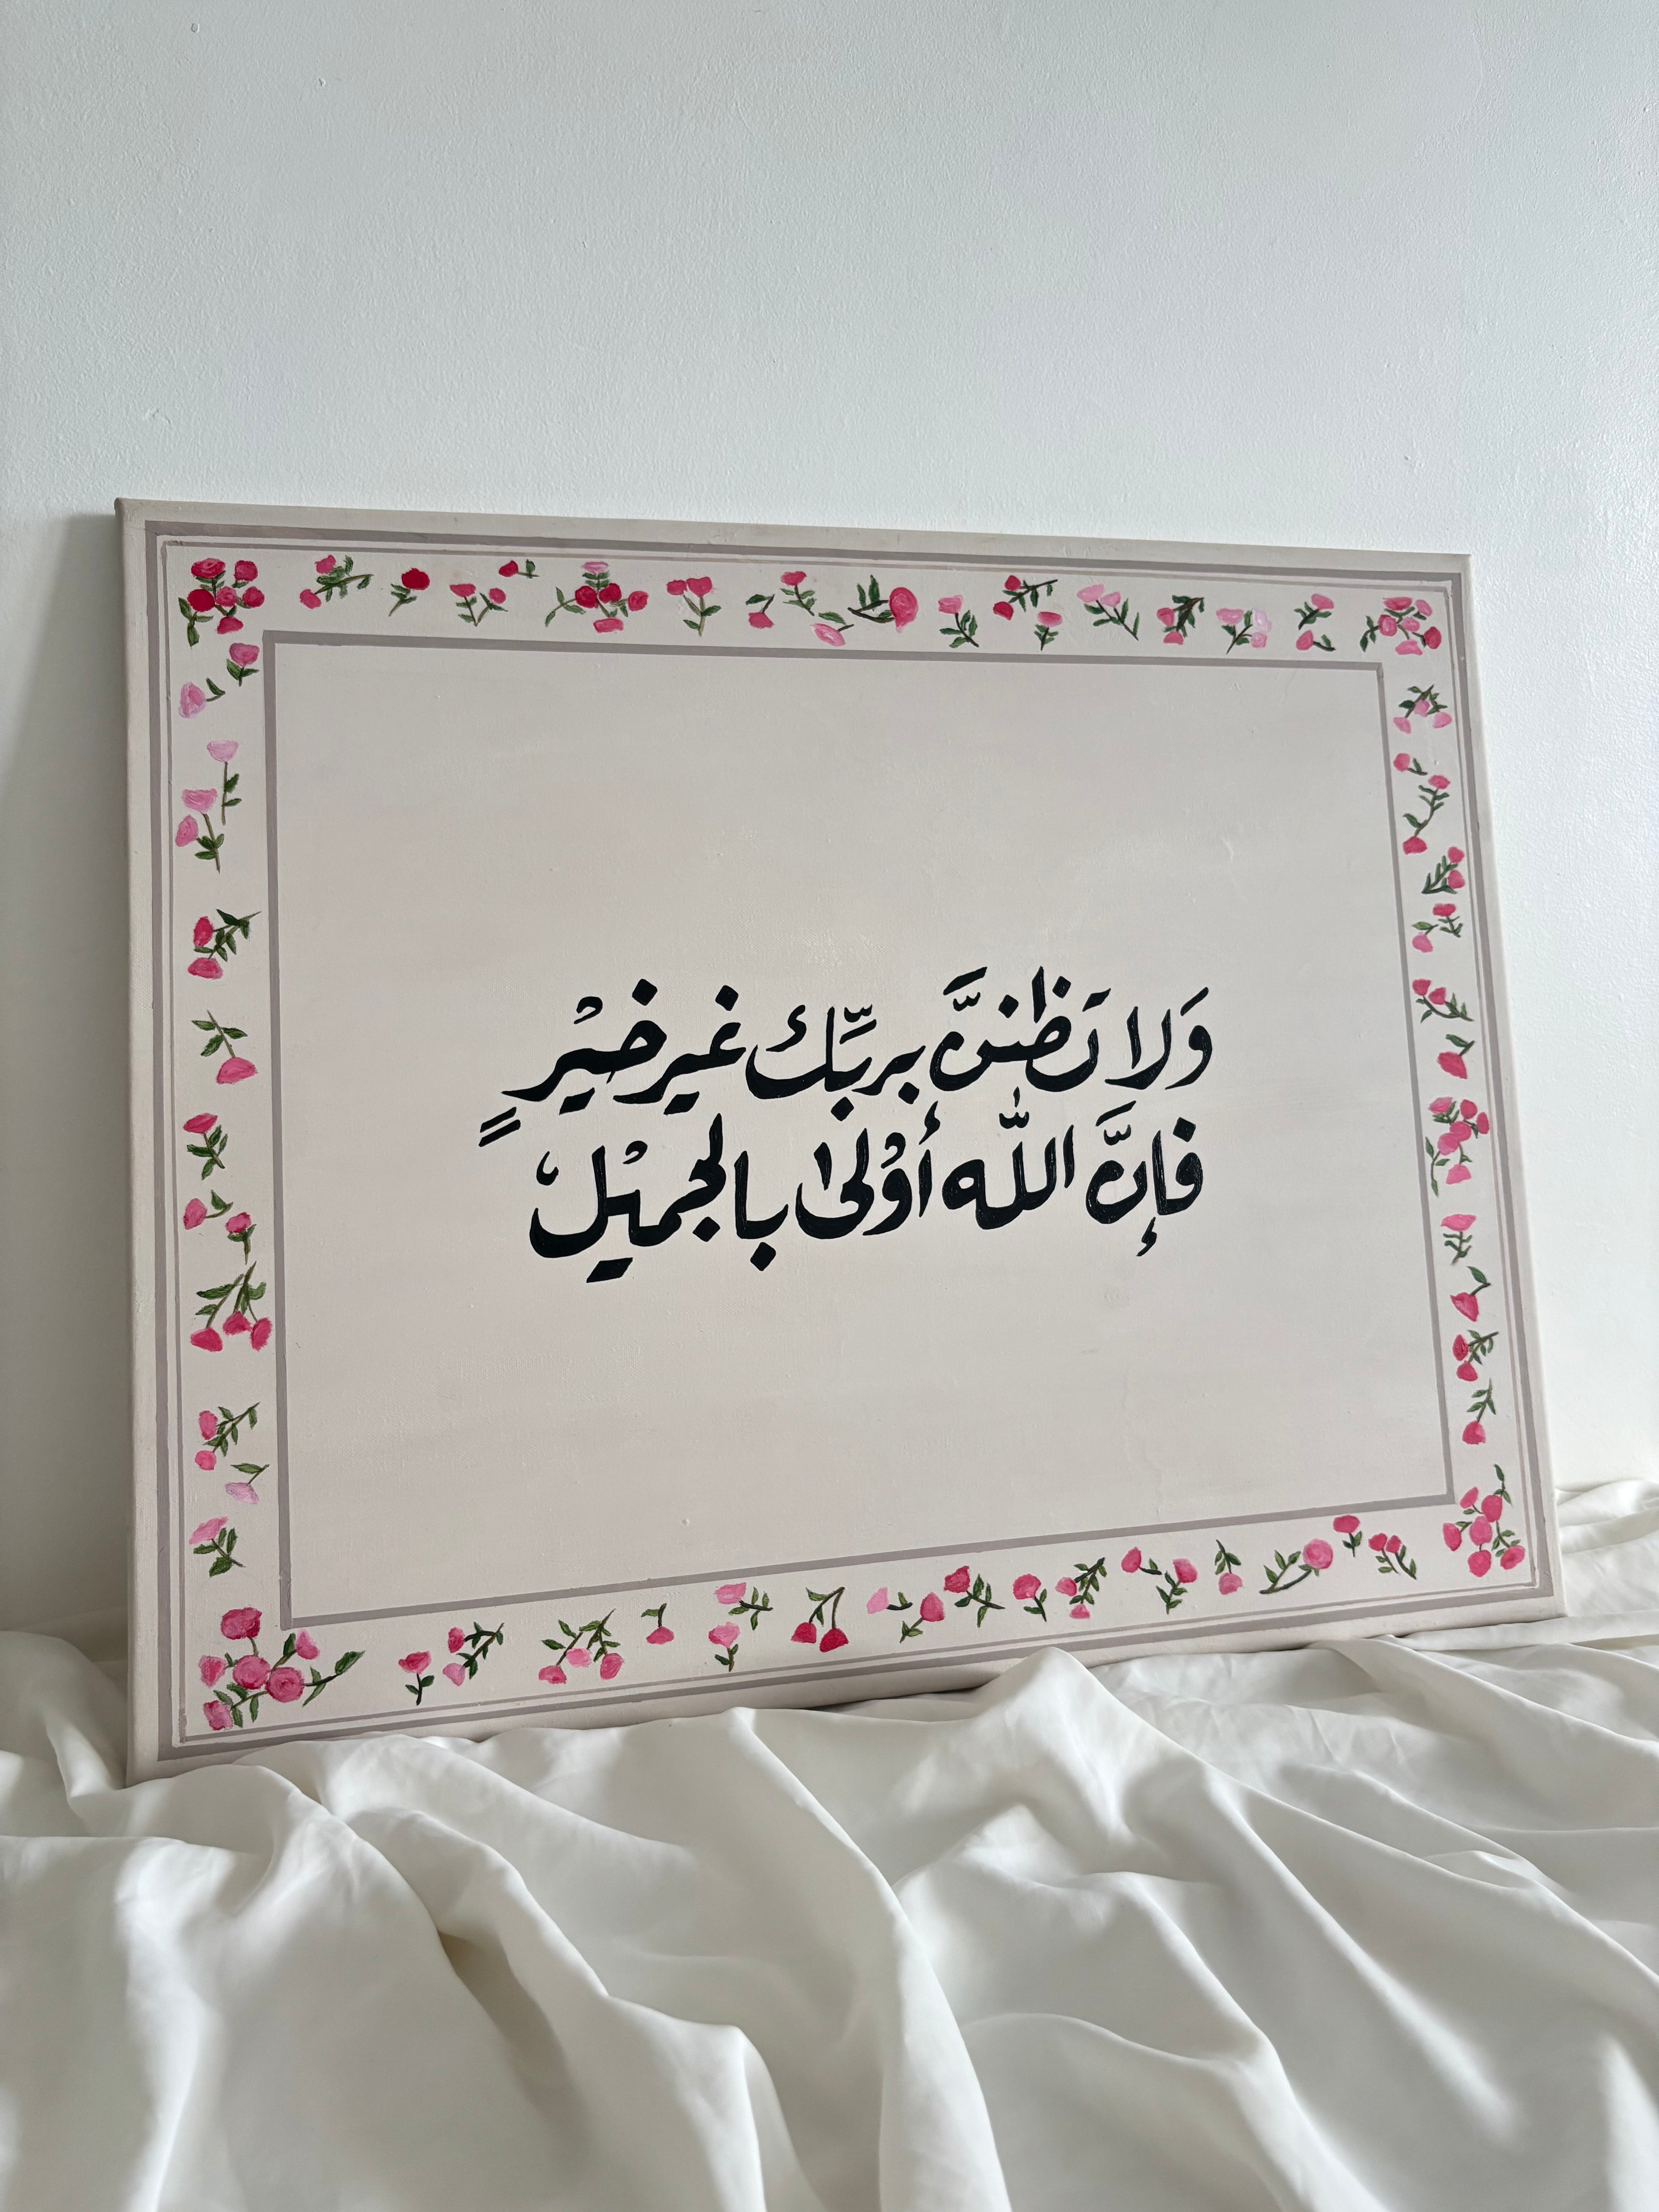 وَلا تَظُنَنَّ بربِّك غير خيْرٍ
فإنَّ اللّه أوْلىٰ بالجميْل